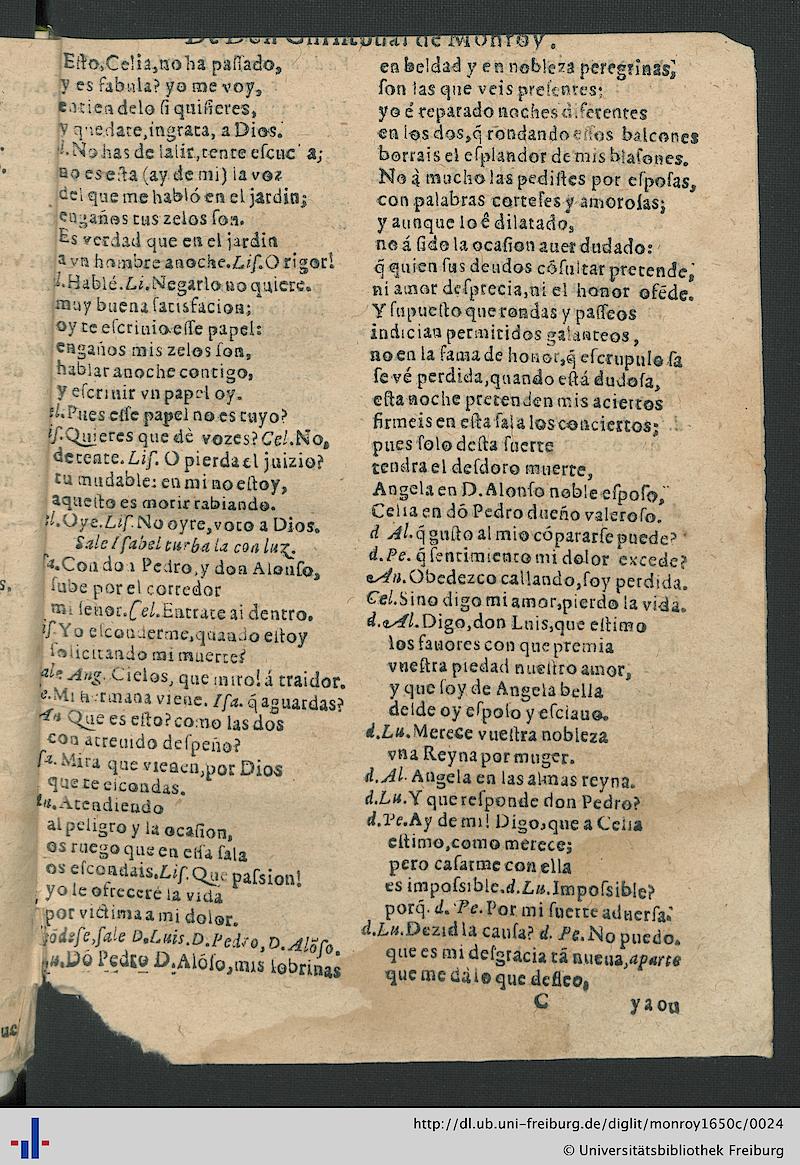 De Don Christoual de Monroy.
Eſto, Celia, no ha paſſado,
y es fabula? yo me voy,
entiendelo ſi quiſieres,
y quedate, ingrata, a Dios.
l. No has de ſalir, tente eſcucha;
no es eſta (ay de mi) la voz
del que me habló en el jardin;
engaños tus zelos ſon.
Es verdad que en el jardin
a vn hombre anoche. Liſ. O rigor!
l. Hablé. Li. Negarlo no quiere.
muy buena ſatisfacion;
oy te eſcriuio eſſe papel:
engaños mis zelos ſon,
hablar anoche contigo,
y eſcriuir vn papel oy.
el. Pues eſſe papel no es tuyo?
iſ. Quieres que dè vozes? Cel. No,
detente. Liſ. O pierda el juizio?
tu mudable: en mi no eſtoy,
aqueſto es morir rabiando.
el. Oye. Liſ. No oyre, voto a Dios.
Sale Iſabel turbala con luz.
ſa. Con don Pedro, y don Alonſo,
ſube por el corredor
mi ſeñor. Cel. Entrate ai dentro.
iſ. Yo eſconderme, quando eſtoy
ſolicitando mi muerte?
ale Ang. Cielos, que miro! á traidor.
e. Mi hermana viene. Iſa. q̃ aguardas?
An Que es eſto? como las dos
con atreuido deſpeño?
ſa. Mira que vienen, por Dios
que te eſcondas.
Lu. Atendiendo
al peligro y la ocaſion,
os ruego que en eſſa ſala
os eſcondais. Liſ. Que paſsion!
yo le ofreceré la vida
por victima a mi dolor.
odeſe, ſale D. Luis. D. Pedro, D. Alõſo.
Lu. Dõ Pedro D. Alõſo, mis ſobrinas
en beldad y en nobleza peregrinas,
ſon las que veis preſentes;
yo é reparado noches diferentes
en los dos, q̃ rondando eſſos balcones
borrais el eſplandor de mis blaſones.
No á mucho las pediſtes por eſpoſas,
con palabras corteſes y amoroſas;
y aunque lo é dilatado,
no á ſido la ocaſion auer dudado:
q̃ quien ſus deudos cõſultar pretende,
ni amor deſprecia, ni el honor ofẽde.
Y ſupueſto que rondas y paſſeos
indician permitidos galanteos,
no en la fama de honor, q̃ eſcrupuloſa
ſe vé perdida, quando eſtá dudoſa,
eſta noche pretenden mis aciertos
firmeis en eſta ſala los conciertos;
pues ſolo deſta ſuerte
tendra el deſdoro muerte,
Angela en D. Alonſo noble eſpoſo,
Celia en dõ Pedro dueño valeroſo.
d Al. q̃ guſto al mio cõpararſe puede?
d. Pe. q̃ ſentimiento mi dolor excede?
An. Obedezco callando, ſoy perdida.
Cel. Si no digo mi amor, pierdo la vida.
d. Al. Digo, don Luis, que eſtimo
los fauores con que premia
vueſtra piedad nueſtro amor,
y que ſoy de Angela bella
deſde oy eſpoſo y eſclauo.
d. Lu. Merece vueſtra nobleza
vna Reyna por muger.
d. Al. Angela en las almas reyna.
d. Lu. Y que reſponde don Pedro?
d. Pe. Ay de mi! Digo, que a Celia
eſtimo, como merece;
pero caſarme con ella
es impoſsible. d. Lu. Impoſsible?
porq̃. d. Pe. Por mi ſuerte aduerſa.
d. Lu. Dezid la cauſa? d. Pe. No puedo.
que es mi deſgracia tã nueua, aparte
que me dá lo que deſſeo,
C yaou
http://dl.ub.uni-freiburg.de/diglit/monroy1650c/0024
© Universitätsbibliothek Freiburg